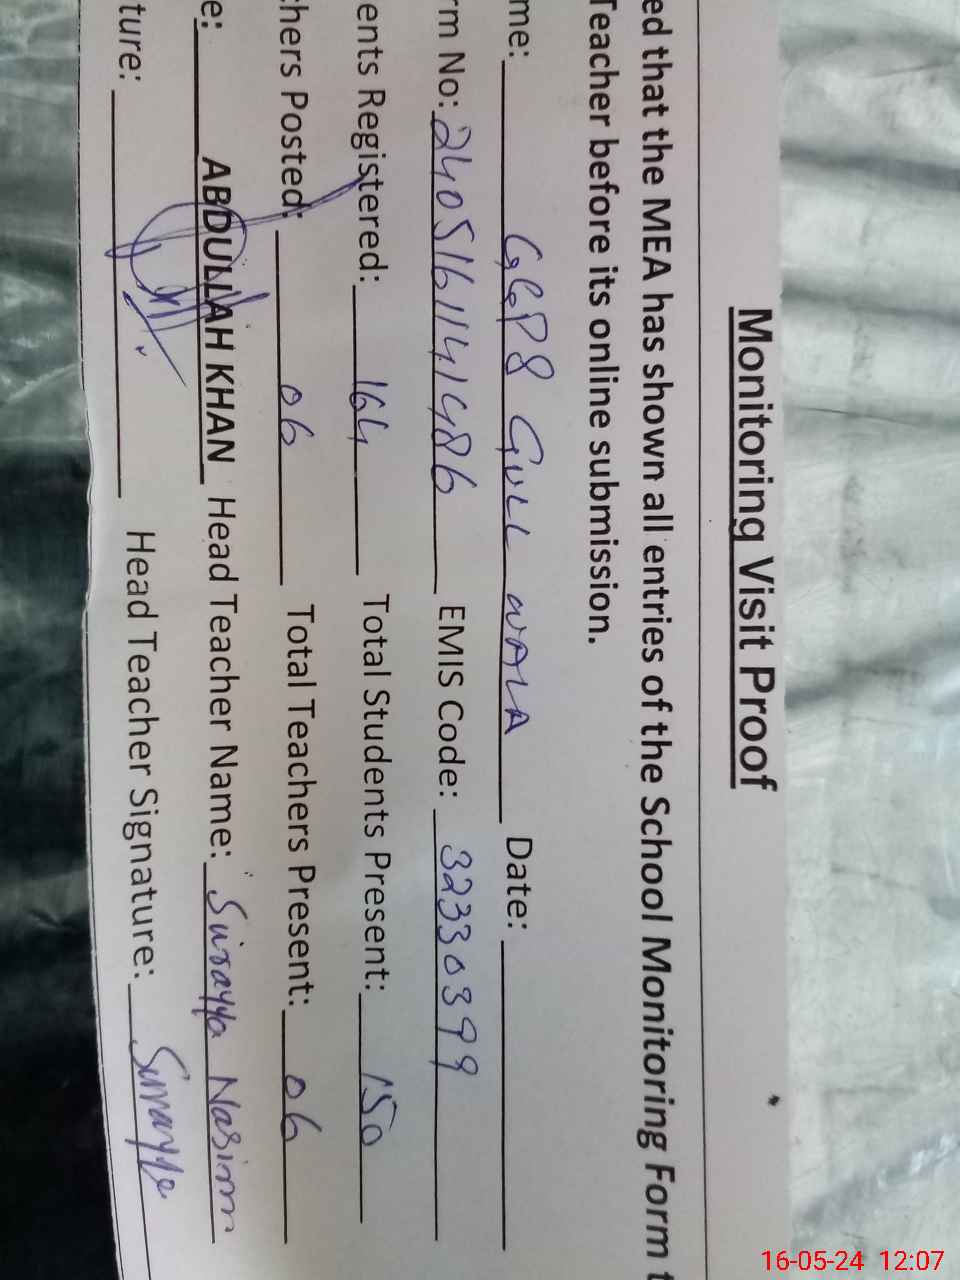 Monitoring Visit Proof
ed that the MEA has shown all entries of the School Monitoring Form t
Teacher before its online submission.
me: GGPS GULL WALA Date:
rm No: 24051611414186 EMIS Code: 32330399
ents Registered: 164 Total Students Present: 150
chers Posted: 06 Total Teachers Present: 06
e: ABDULLAH KHAN Head Teacher Name: Surayya Nasim
ture: Head Teacher Signature: Surayya
16-05-24 12:07